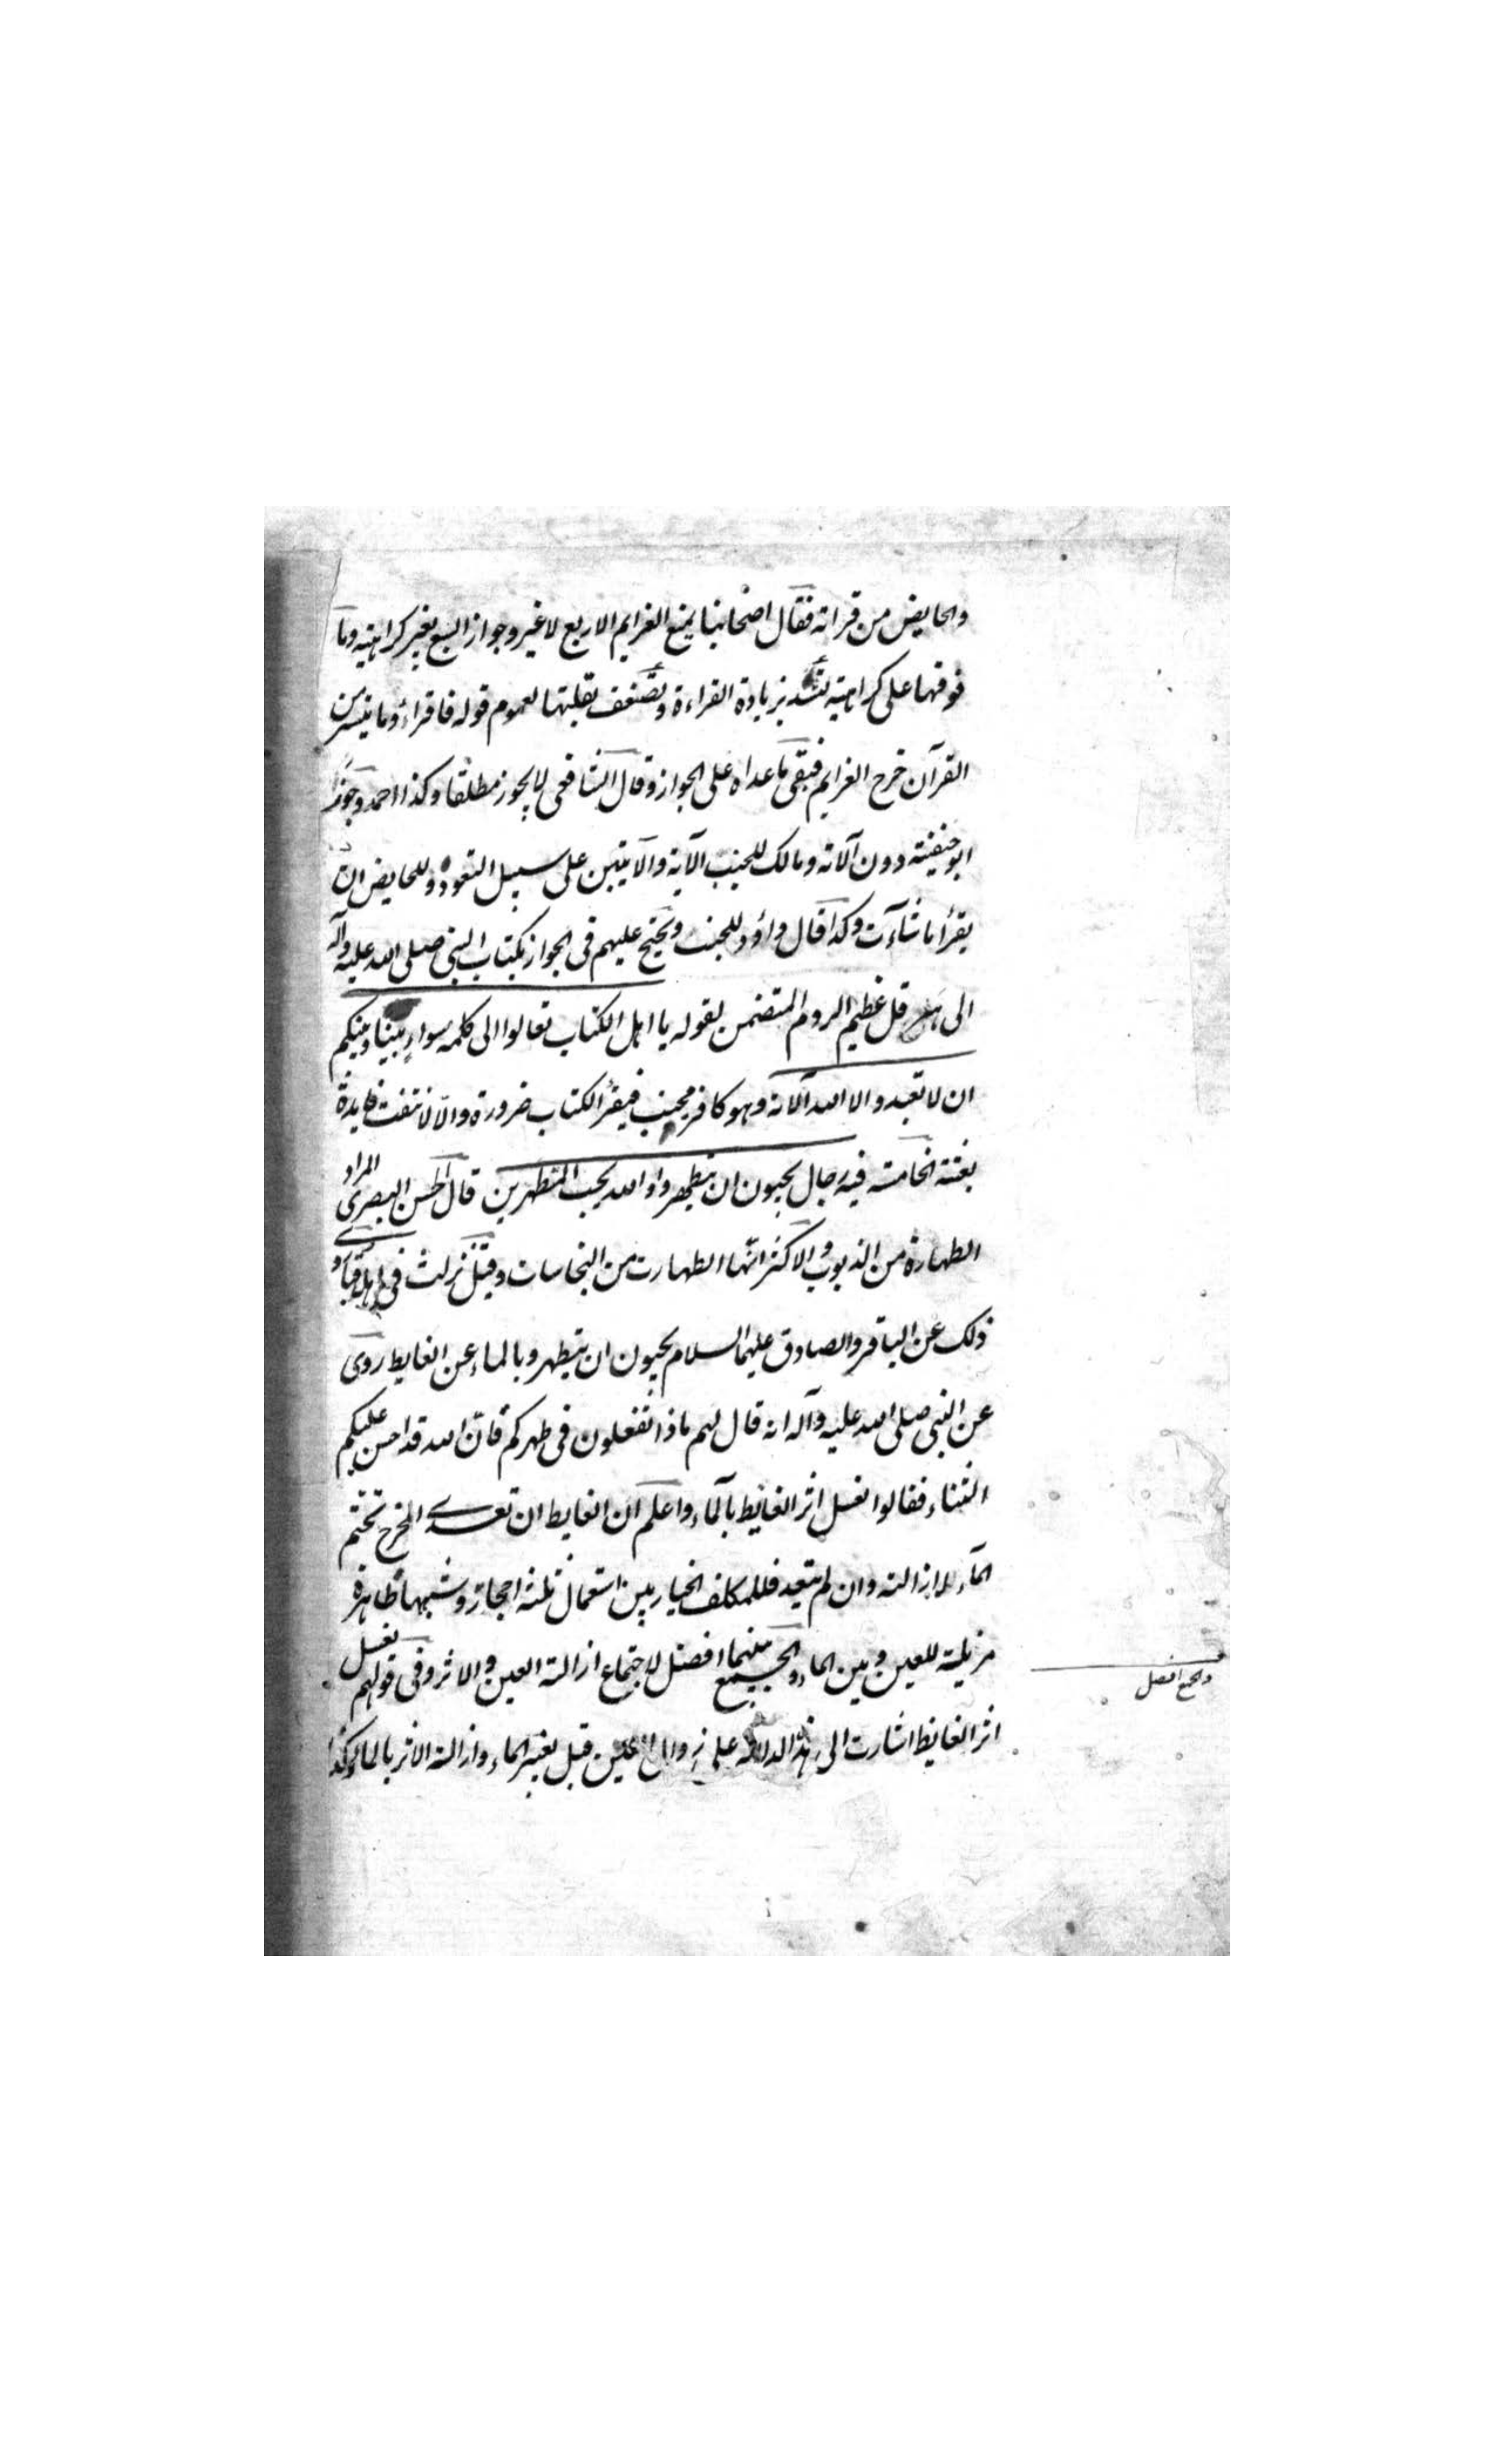 والحايض من قراته فقال اصحابنا يمنع العزايم الاربع لا غير وجواز السبع بغير كراهية وما
فوقها على كراهية تشتد بزيادة القراءة وتضعف بقلتها لعموم قوله فاقراؤا ما تيسر من
القرآن خرج العزايم فبقى ما عداه على الجواز وقال الشافعى لا يجوز مطلقا وكذا احمد وجوز
ابو حنيفة دون آلاية ومالك للجنب الآية والآيتين على سبيل التعوذ وللحايض ان
يقرأ ما شاءت وكذا قال داود للجنب ونحتج عليهم فى الجواز بكتاب النبى صلى الله عليه وآله
الى هرقل عظيم الروم المتضمن لقوله يا اهل الكتاب تعالوا الى كلمة سواء بيننا وبينكم
ان لا تعبدوا الا الله آلاية وهو كافر مجنب فيقرأ الكتاب ضرورة والا لانتفت فايدة
بعثته الخامسة فيه رجال يحبون ان يتطهروا والله يحب المتطهرين قال الحسن البصرى المراد
الطهارة من الذنوب والاكثر انها الطهارت من النجاسات وقيل نزلت فى اهل قبا وروى
ذلك عن الباقر والصادق عليهما السلام يحبون ان يتطهروا بالماء عن الغايط روى
عن النبى صلى الله عليه وآله انه قال لهم ماذا تفعلون فى طهركم فان الله قد احسن عليكم
الثناء فقالوا نغسل اثر الغائط بالماء واعلم ان الغايط ان تعدى المخرج تحتم
الماء لازالته وان لم يتعد فللمكلف الخيار بين استعمال ثلثة احجار وشبهها طاهرة
مزيلة للعين وبين الماء والجمع بينهما افضل لاجتماع ازالة العين والاثر وفى قولهم نغسل
والجمع افضل
اثر الغايط اشارت الى هذه الدلالة على زوال العين قبل بغير الماء وازالة الاثر بالماء وكذا